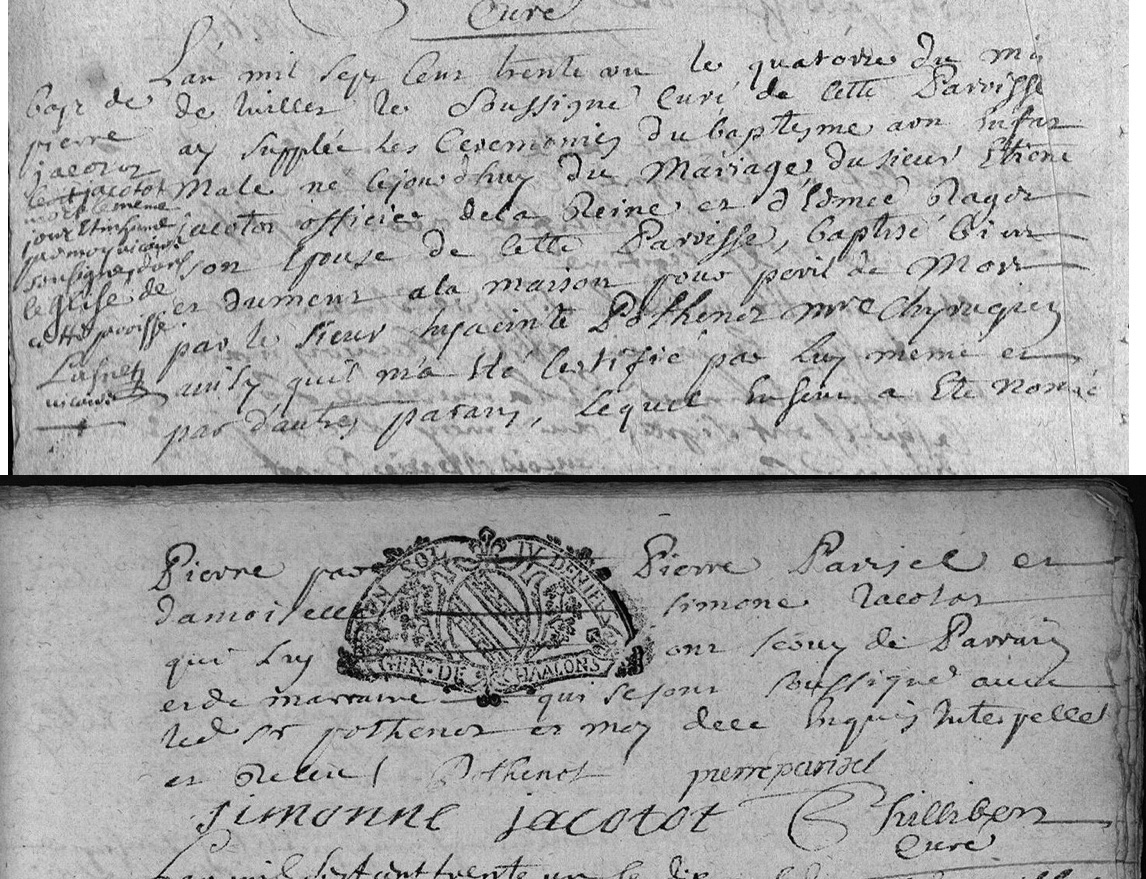 Curé
L'an mil sept cent trente un le quatorze du mois
de Juillet je soussigné Curé de cette Parroisse
ay supplée les Ceremonies du baptesme a un enfant
Male né cejourdhuy du Mariage du sieur Etiene
jacotot officier de la Reine et d'Edmée Ragot
son Epouse de cette Parroisse, baptisé bien
et dument a la maison pour peril de Mort
par le sieur hyacinte Pothenot mre Chyrugien
ainsy quil m'a été Certifié par Luy meme et
par d'autres parans, Lequel Enfant a Eté nomé
bapt de
pierre
jacotot
le jacotot
mort le meme
jour et inhumé
par moy vicaire
soussigné dans
leglise de
cette paroisse.
vicaire
Pierre par Pierre Parisel et
damoiselle simone Jacotot
qui Luy ont servy de Parrain
et de marraine qui se sont soussignés avec
led sr pothenot et moy de ce Enquis Interpellés
et Requis Pothenot pierre parisel
simonne jacotot Phillibert
Curé
GEN. DE CHAALONS
L'an mil sept cent trente un le dix